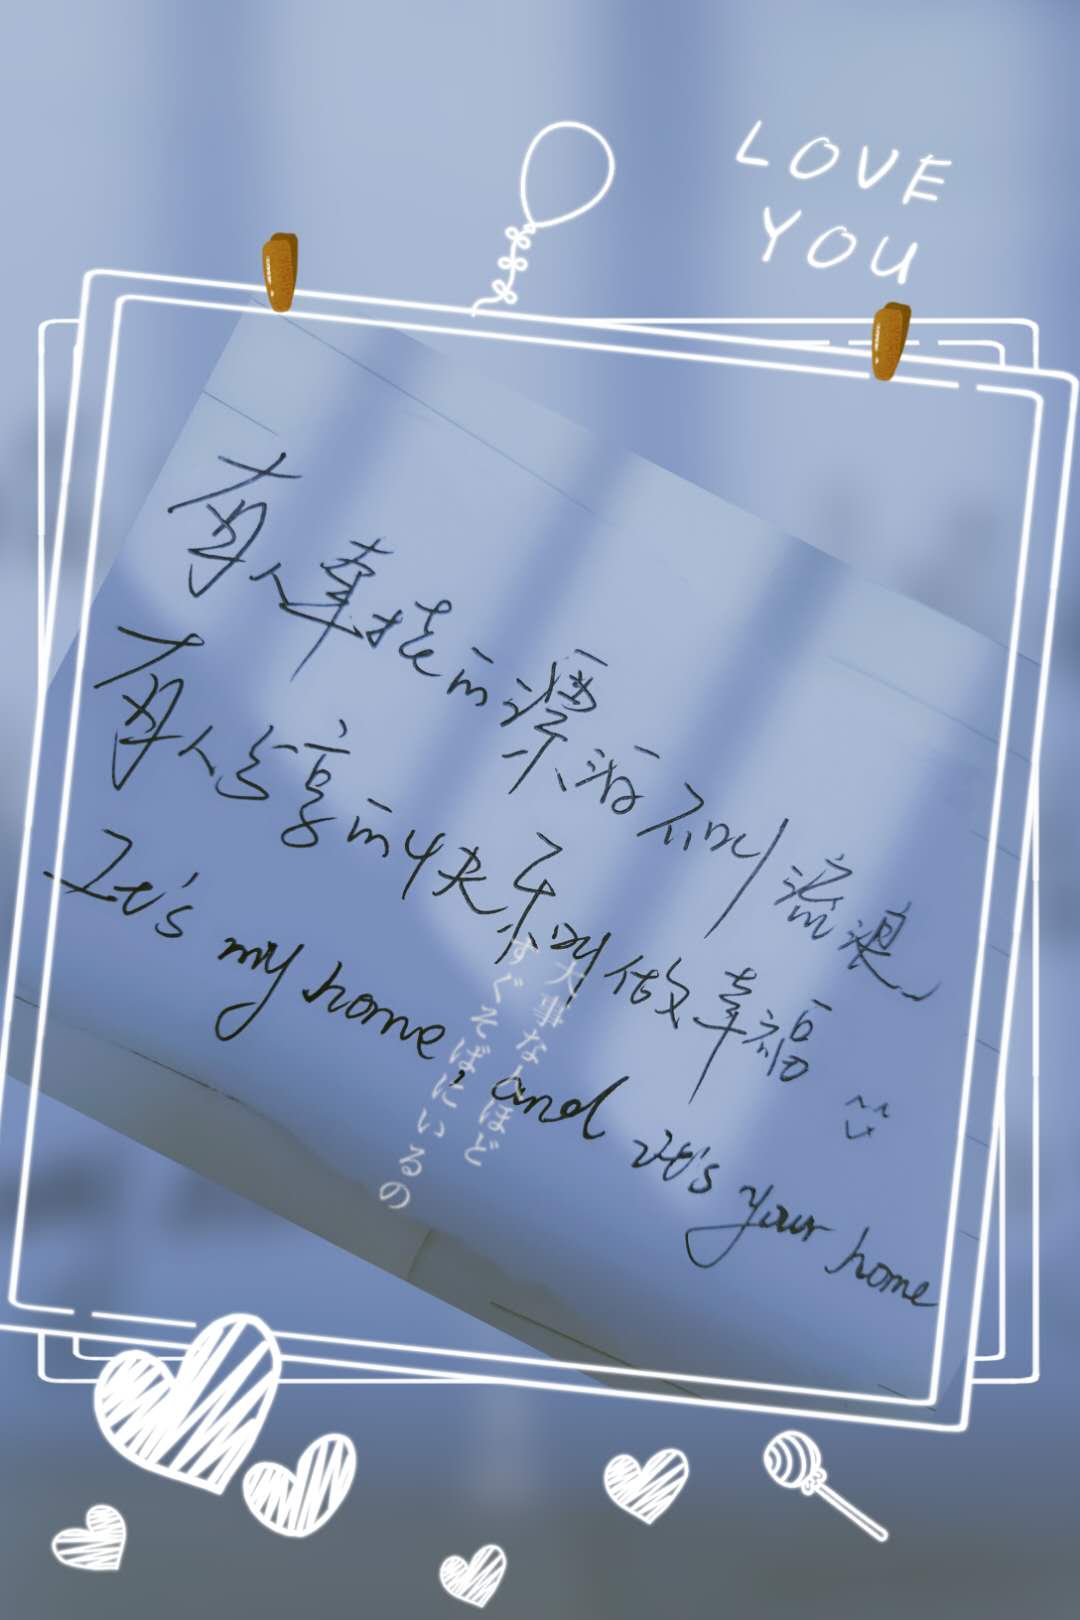 LOVE
YOU
有人牵挂的漂泊不叫流浪
有人分享的快乐叫做幸福
It's my home, and it's your home
大事な人ほど
すぐそばにいるの